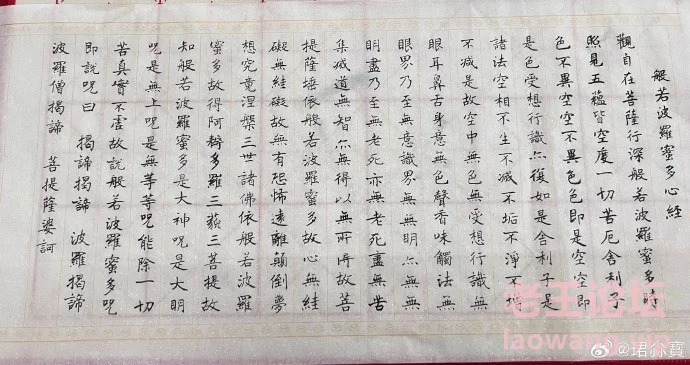 般若波羅蜜多心經
觀自在菩薩行深般若波羅蜜多時
照見五蘊皆空度一切苦厄舍利子
色不異空空不異色色即是空空即
是色受想行識亦復如是舍利子是
諸法空相不生不滅不垢不淨不增
不減是故空中無色無受想行識無
眼耳鼻舌身意無色聲香味觸法無
眼界乃至無意識界無無明亦無無
明盡乃至無老死亦無老死盡無苦
集滅道無智亦無得以無所得故菩
提薩埵依般若波羅蜜多故心無罣
礙無罣礙故無有恐怖遠離顛倒夢
想究竟涅槃三世諸佛依般若波羅
蜜多故得阿耨多羅三藐三菩提故
知般若波羅蜜多是大神咒是大明
咒是無上咒是無等等咒能除一切
苦真實不虛故說般若波羅蜜多咒
即說咒曰 揭諦揭諦 波羅揭諦
波羅僧揭諦 菩提薩婆訶
老王论坛
laowang.vip